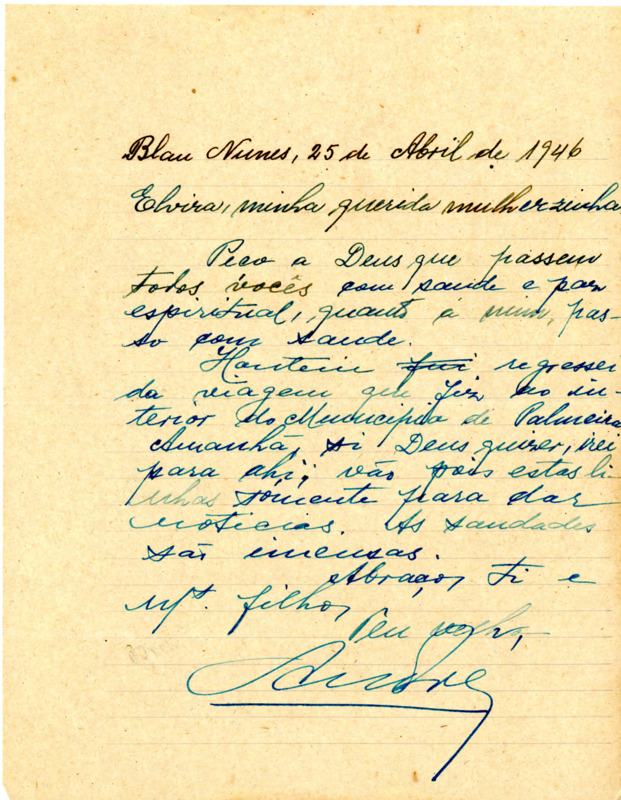 Blau Nunes, 25 de Abril de 1946
Elvira, minha querida mulherzinha
Peço a Deus que passem
todos vocês com saude e paz
espiritual, quanto à mim, pas-
so com saude.
Hontem fui regressei
da viagem que fiz ao in-
terior do Municipio de Palmeira
Amanhã, si Deus quizer, irei
para ahi; vão pois estas li-
nhas sómente para dar
noticias. As saudades
são imensas.
Abraços, Ti e
filhos,
Teu velho,